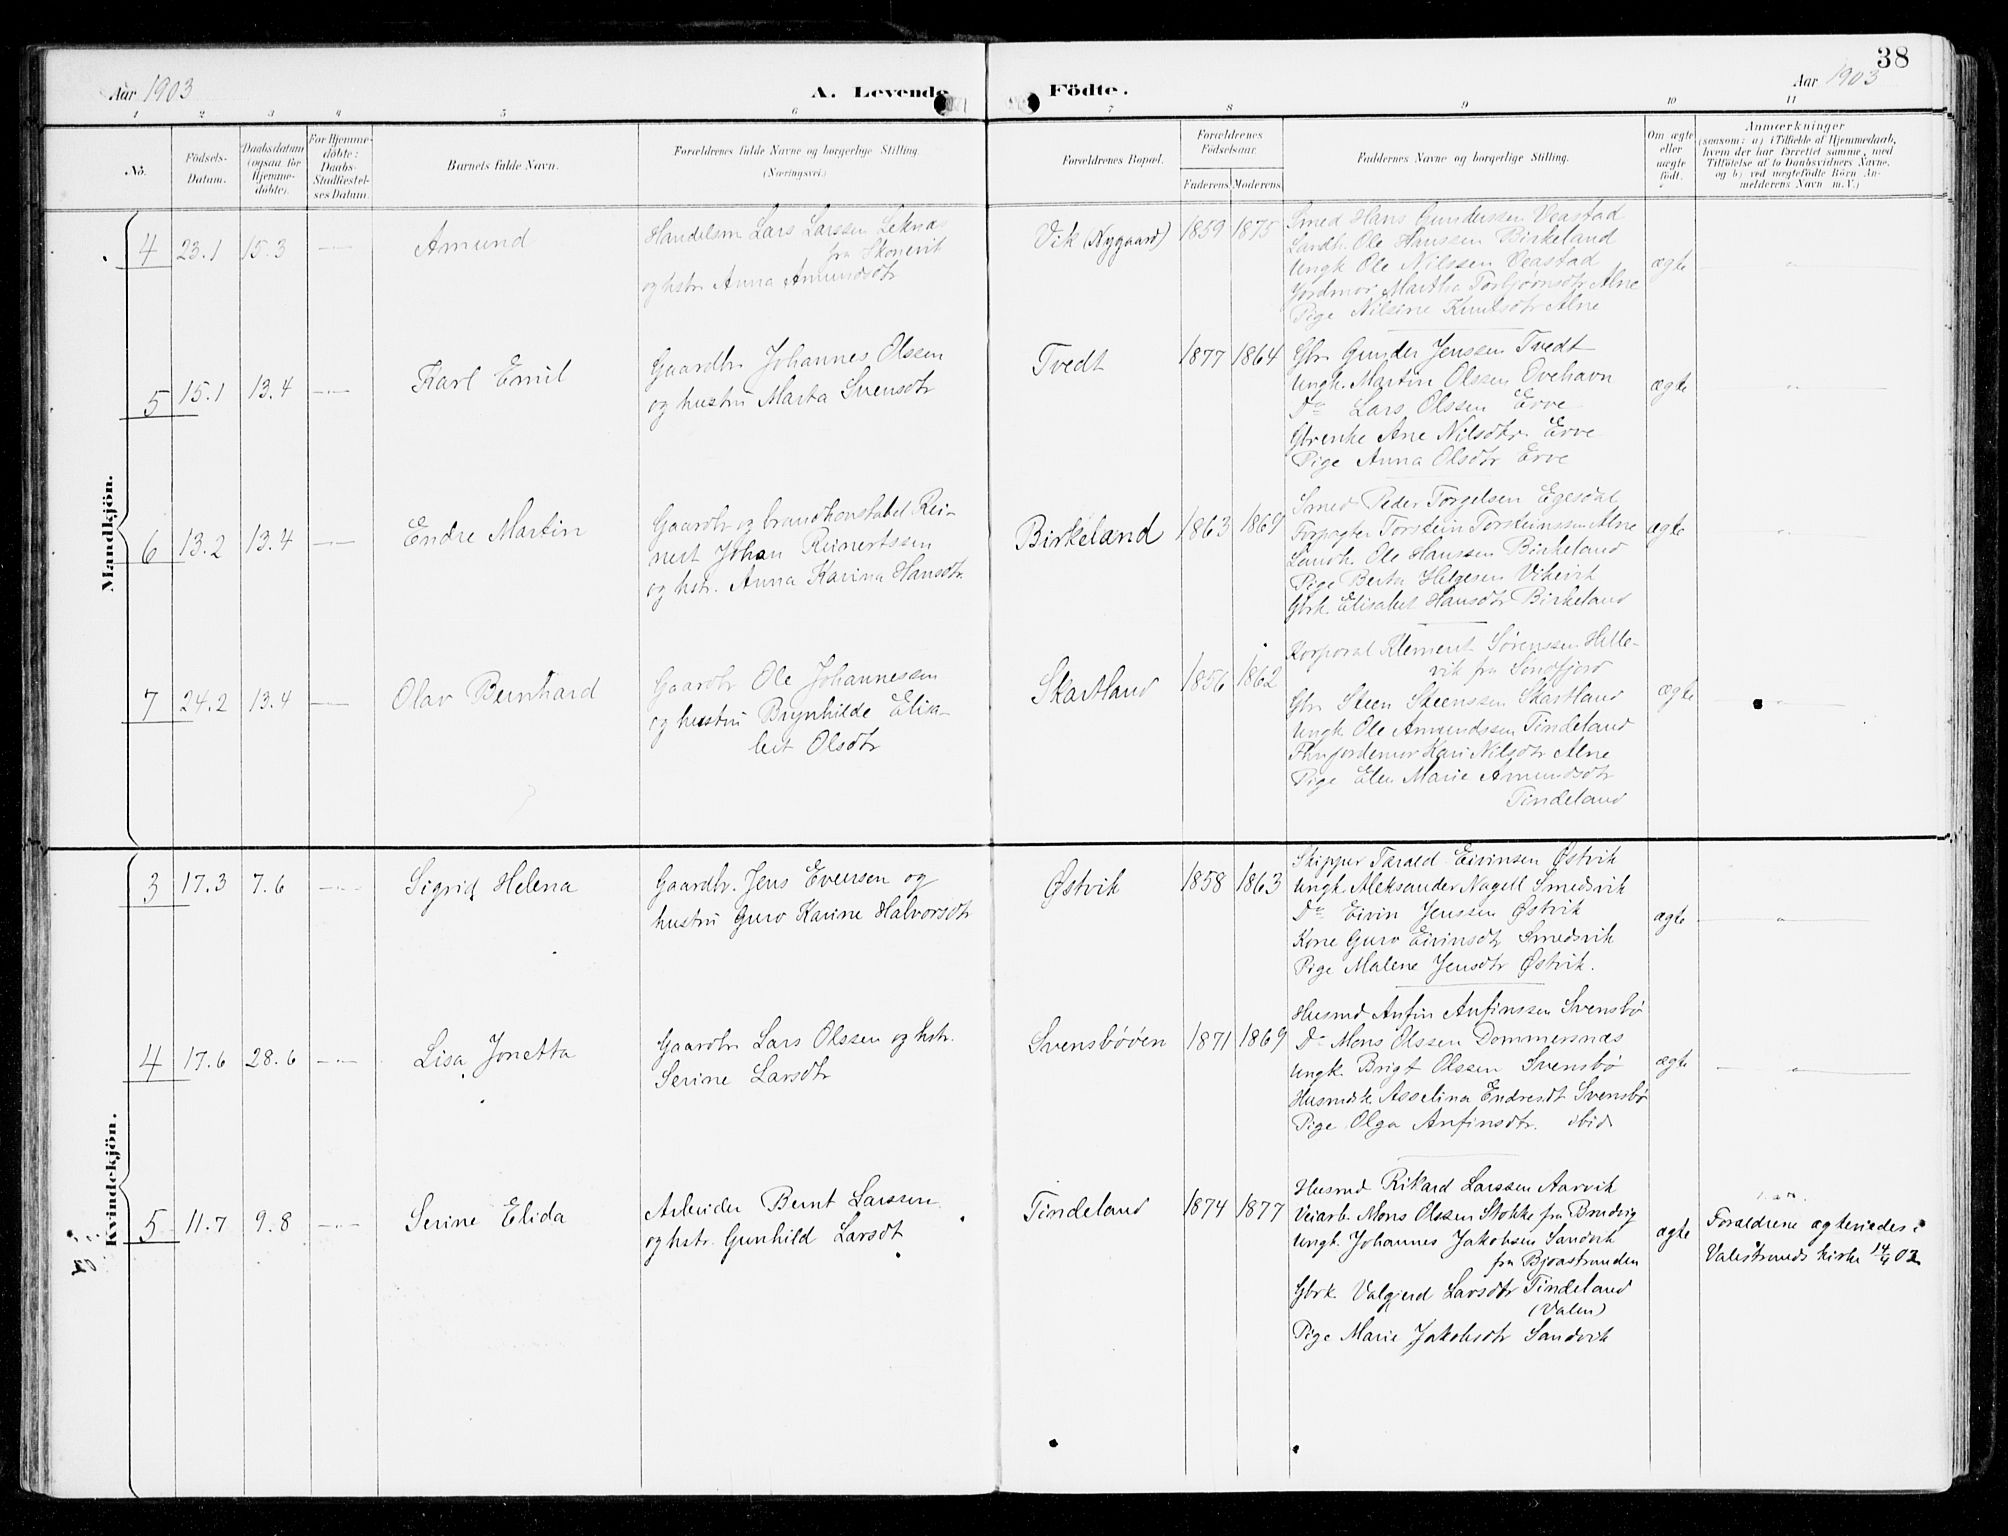 38
Aar 1903
A. Levende Födte.
Aar 1903
1 2 3 4 5 6 7 8 9 10 11
No.
Födsels-Datum.
Daabsdatum (ogsaa for Hjemmedöbte).
For Hjemmedöbte: Daabs-Stadfæstelses Datum.
Barnets fulde Navn.
Forældrenes fulde Navne og borgerlige Stilling.
(Næringsvei.)
Forældrenes Bopæl.
Forældrenes Födselsaar.
Faderens Moderens
Faddernes Navne og borgerlige Stilling.
Om ægte eller uægte födt.
Anmærkninger
(saasom: a) i Tilfælde af Hjemmedaab, hvem der har forrettet samme, med Tilföielse af to Daabsvidners Navne, og b) ved uægtefödte Börn, Anmelderens Navn m. V.)
Mandkjön.
4 23.1 15.3 Amund
Handelsm Lars Larssen Leknæs
fra Skonevik
og hstr Anna Amundsdtr
Vik (Nygaard) 1859 1875
Smed Hans Gunderssen Veastad
Landh. Ole Hanssen Birkeland
Ungk. Ole Nilssen Veastad
Jordmor Martha Torbjørnsdtr Alne
Pige Nilsine Knutsdtr Alne
ægte
5 15.1 13.4 Karl Emil
Gaardbr Johannes Olssen
og hustru Marta Svensdtr
Tvedt 1877 1864
Gbr Gunder Jenssen Tvedt
Ungk. Martin Olssen Ovehavn
Do Lars Olssen Erve
Gbrenke Ane Nilsdtr. Erve
Pige Anna Olsdtr Erve
ægte
6 13.2 13.4 Endre Martin
Gaardbr og brandkonstabel Rei-
nert Johan Reinertssen
og hstr. Anna Karina Hansdtr
Birkeland 1863 1869
Smed Peder Torgelsen Egesdal
Forpagter Torstein Torsteinssen Alne
Landh. Ole Hanssen Birkeland
Pige Berta Helgesen Vikevik
Gbrk. Elisabet Hansdtr Birkeland
ægte
7 24.2 13.4 Olav Bernhard
Gaardbr Ole Johannessen
og hustru Brynhilde Elisa-
bet Olsdtr
Skartland 1856 1862
Korporal Klement Sørenssen Hille-
vik fra Søndfjord
Gbr Steen Steenssen Skartland
Ungk Ole Amundssen Tindeland
Fhnjordemor Kari Nilsdtr Alne
Pige Elen Marie Amundsdtr
Tindeland
ægte
Kvindekjön.
3 17.3 7.6 Sigrid Helena
Gaardbr. Jens Evensen og
hustru Guro Karine Halvorsdtr
Østvik 1858 1863
Skipper Tarald Eivinsen Østvik
Ungk. Aleksander Nagell Smedsvik
Do Eivin Jenssen Østvik
Kone Guro Eivinsdtr Smedsvik
Pige Malene Jensdtr Østvik.
ægte
4 17.6 28.6 Lisa Jonetta
Gaardbr Lars Olssen og hstr.
Serine Larsdtr
Svensbøøen 1871 1869
Husmd Anfin Anfinssen Svensbø
Do Mons Olssen Dommersnæs
Ungk. Brigt Olssen Svensbø
Husmdk Asselina Endresdt Svensbø
Pige Olga Anfinsdtr. ibid
ægte
5 11.7 9.8 Serine Elida
Arbeider Bernt Larssen
og hstr. Gunhild Larsdt
Tindeland 1874 1877
Husmd Rikard Larssen Aarvik
Veiarb. Mons Olssen Stokke fra Bredvig
Ungk. Johannes Jakobsen Sandvik
fra Bjoastranden
Gbrk. Valgjerd Larsdtr Tindeland
(Valen)
Pige Marie Jakobsdtr Sandvik
ægte
Forældrene ægteviedes i
Valestrands kirke 14/4 02